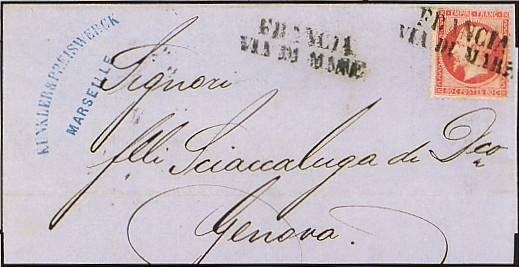 KUNKLER & PREISWERCK
MARSEILLE
FRANCIA
VIA DI MARE
FRANCIA
VIA DI MARE
EMPIRE FRANC
80 C POSTES 80 C
Signori
flli Sciaccaluga de Dco
Genova.